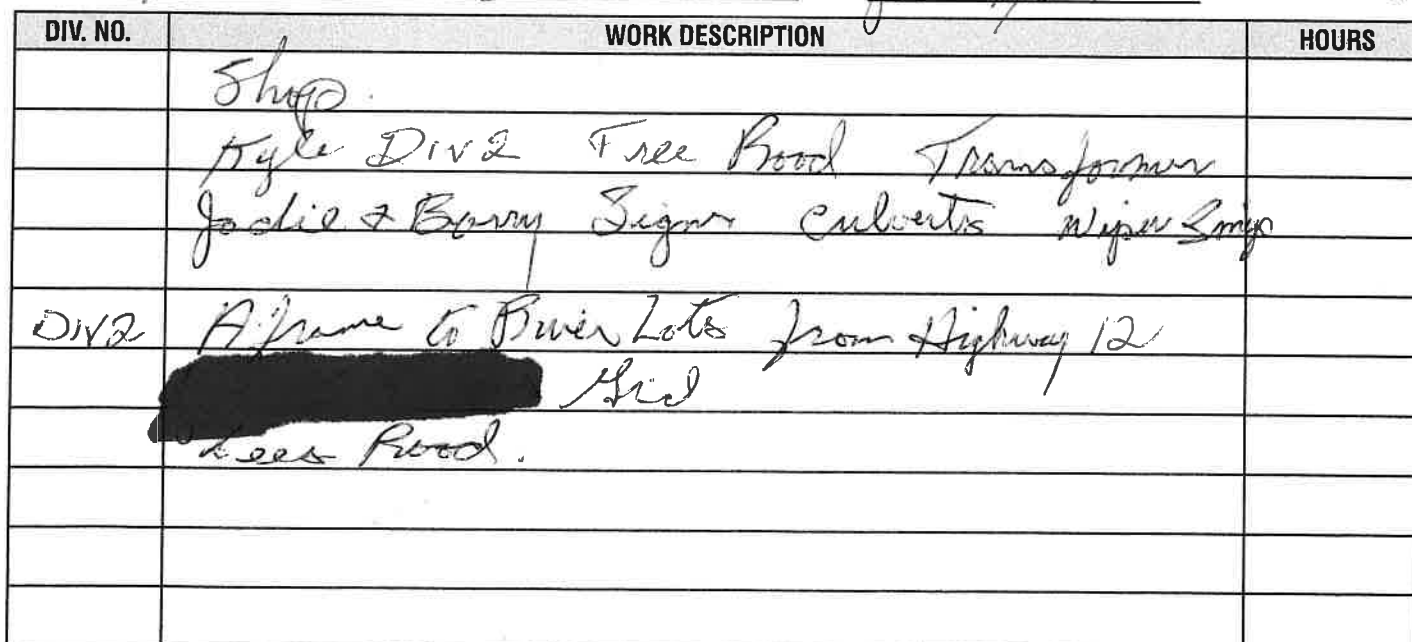 DIV. NO. WORK DESCRIPTION HOURS
Shop.
Kyle Div2 Free Road Transformer
Jodie & Barry Signs Culverts Wiper
DIV2 A frame to River Lots from Highway 12
Grid
Lees Road.